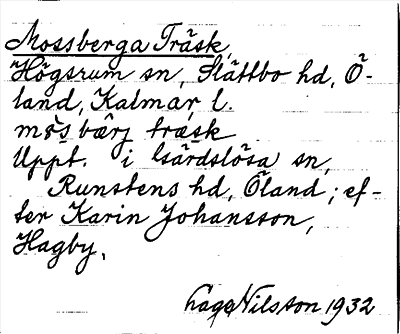 Mossberga Träsk,
Högsrum sn, Slättbo hd, Ö-
land, Kalmar l.
mŏs̲bärj träsk
Uppt. i Gärdslösa sn,
Runstens hd, Öland; ef-
ter Karin Johansson,
Hagby.
Lage Nilsson 1932